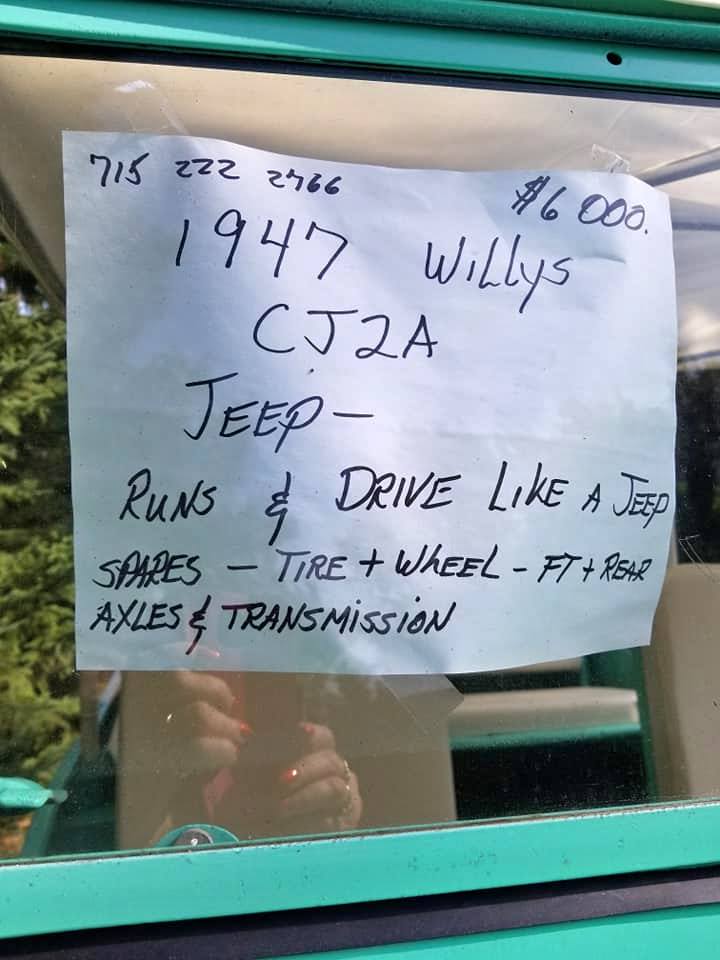 715 222 2766
$6 000.
1947 Willys
CJ2A
JEEP-
RUNS & DRIVE LIKE A JEEP
SPARES - TIRE + WHEEL - FT + REAR
AXLES & TRANSMISSION